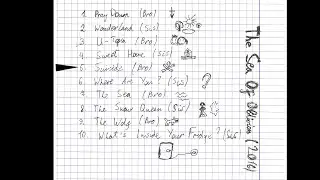 1. Pray Down (Bro)
2. Wonderland (Sis)
3. U-Topia (Bro)
4. Sweet Home (Sis)
5. Suicide (Bro)
6. Where Are You? (Sis)
7. The Sea (Bro)
8. The Snow Queen (Sis)
9. The (Bro)
10. What's Inside Your Fridge? (Sis)
The Sea Of Oblivion (2016)